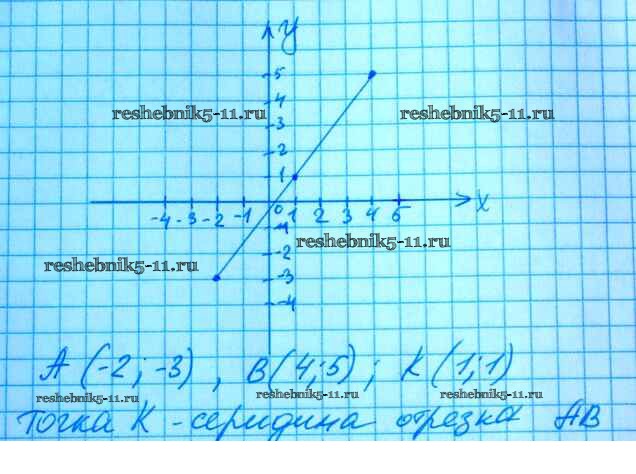 y
5
4
3
reshebnik5-11.ru reshebnik5-11.ru
2
1
-4 -3 -2 -1 0 1 2 3 4 5 x
-1
reshebnik5-11.ru
-2
reshebnik5-11.ru
-3
-4
A (-2; -3), B(4;5); K (1;1)
reshebnik5-11.ru reshebnik5-11.ru reshebnik5-11.ru
Точка K - середина отрезка AB
reshebnik5-11.ru reshebnik5-11.ru